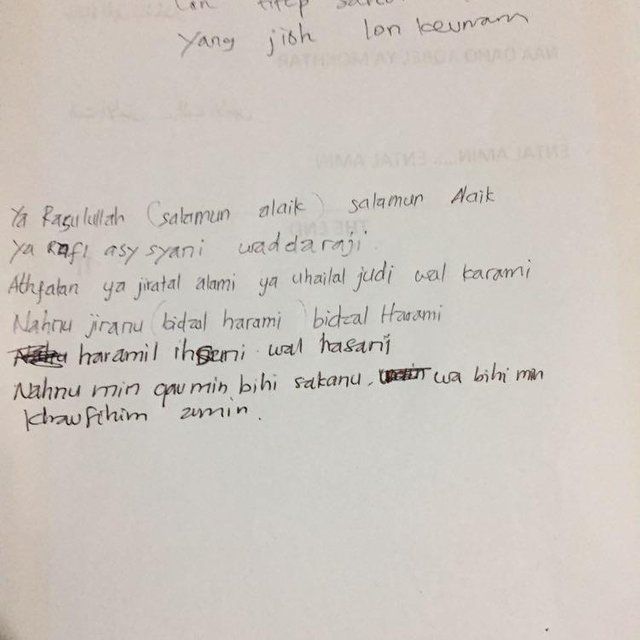 Lon titep
yang jioh lon keunam
Ya Rasulullah (salamun alaik) salamun Alaik
Ya Rafi asy syani waddaraji.
Athfalan ya jiratal alami ya uhailal judi wal karami
Nahnu jiranu (bidzal harami) bidzal Harami
haramil ihsani wal hasani
Nahnu min qaumin bihi sakanu, wa bihi min
khawfihim amin.
NAA DAMO AOREL YA MOKHTAR
ENTAL AMIN... ENTAL AMIN
THE END